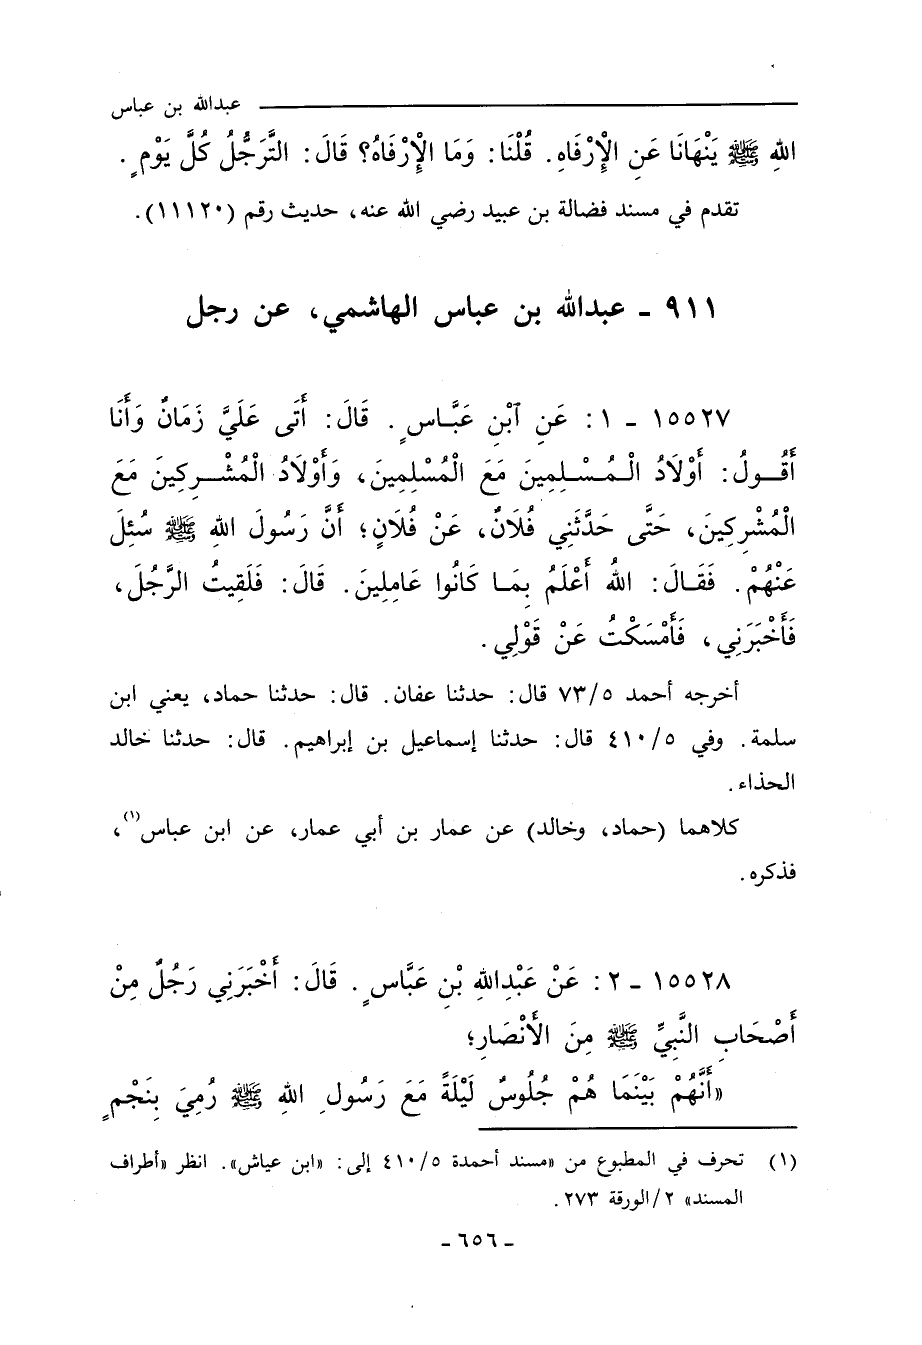 عبدالله بن عباس
اللهِ ﷺ يَنْهَانَا عَنِ الْإِرْفَاهِ. قُلْنَا: وَمَا الْإِرْفَاهُ؟ قَالَ: التَّرَجُّلُ كُلَّ يَوْمٍ.
تقدم في مسند فضالة بن عبيد رضي الله عنه، حديث رقم (١١١٢٠).
٩١١ - عبدالله بن عباس الهاشمي، عن رجل
١٥٥٢٧ - ١: عَنِ ٱبْنِ عَبَّاسٍ. قَالَ: أَتَى عَلَيَّ زَمَانٌ وَأَنَا
أَقُولُ: أَوْلَادُ الْمُسْلِمِينَ مَعَ الْمُسْلِمِينَ، وَأَوْلَادُ الْمُشْرِكِينَ مَعَ
الْمُشْرِكِينَ، حَتَّى حَدَّثَنِي فُلَانٌ، عَنْ فُلَانٍ؛ أَنَّ رَسُولَ اللهِ ﷺ سُئِلَ
عَنْهُمْ. فَقَالَ: اللهُ أَعْلَمُ بِمَا كَانُوا عَامِلِينَ. قَالَ: فَلَقِيتُ الرَّجُلَ،
فَأَخْبَرَنِي، فَأَمْسَكْتُ عَنْ قَوْلِي.
أخرجه أحمد ٧٣/٥ قال: حدثنا عفان. قال: حدثنا حماد، يعني ابن
سلمة. وفي ٤١٠/٥ قال: حدثنا إسماعيل بن إبراهيم. قال: حدثنا خالد
الحذاء.
كلاهما (حماد، وخالد) عن عمار بن أبي عمار، عن ابن عباس(١)،
فذكره.
١٥٥٢٨ - ٢: عَنْ عَبْدِاللهِ بْنِ عَبَّاسٍ. قَالَ: أَخْبَرَنِي رَجُلٌ مِنْ
أَصْحَابِ النَّبِيِّ ﷺ مِنَ الْأَنْصَارِ؛
«أَنَّهُمْ بَيْنَمَا هُمْ جُلُوسٌ لَيْلَةً مَعَ رَسُولِ اللهِ ﷺ رُمِيَ بِنَجْمٍ
(١) تحرف في المطبوع من «مسند أحمدة ٤١٠/٥ إلى: «ابن عياش». انظر «أطراف
المسند» ٢/الورقة ٢٧٣.
- ٦٥٦ -